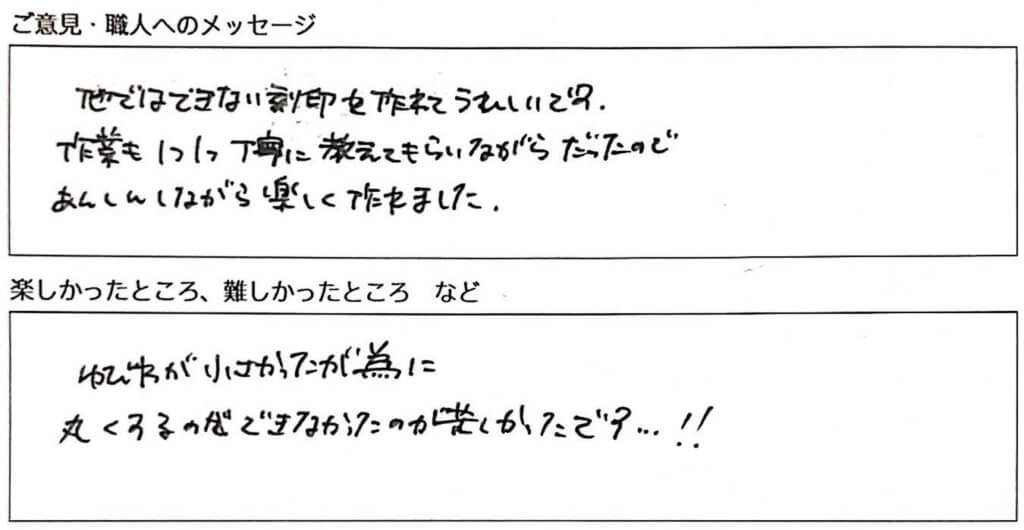 ご意見・職人へのメッセージ
他ではできない刻印を作れてうれしいです.
作業も1つ1つ丁寧に教えてもらいながらだったので
あんしんしながら楽しく作れました.
楽しかったところ、難しかったところ など
ゆびわが小さかったが為に
丸くするのができなかったのが悲しかったです...!!